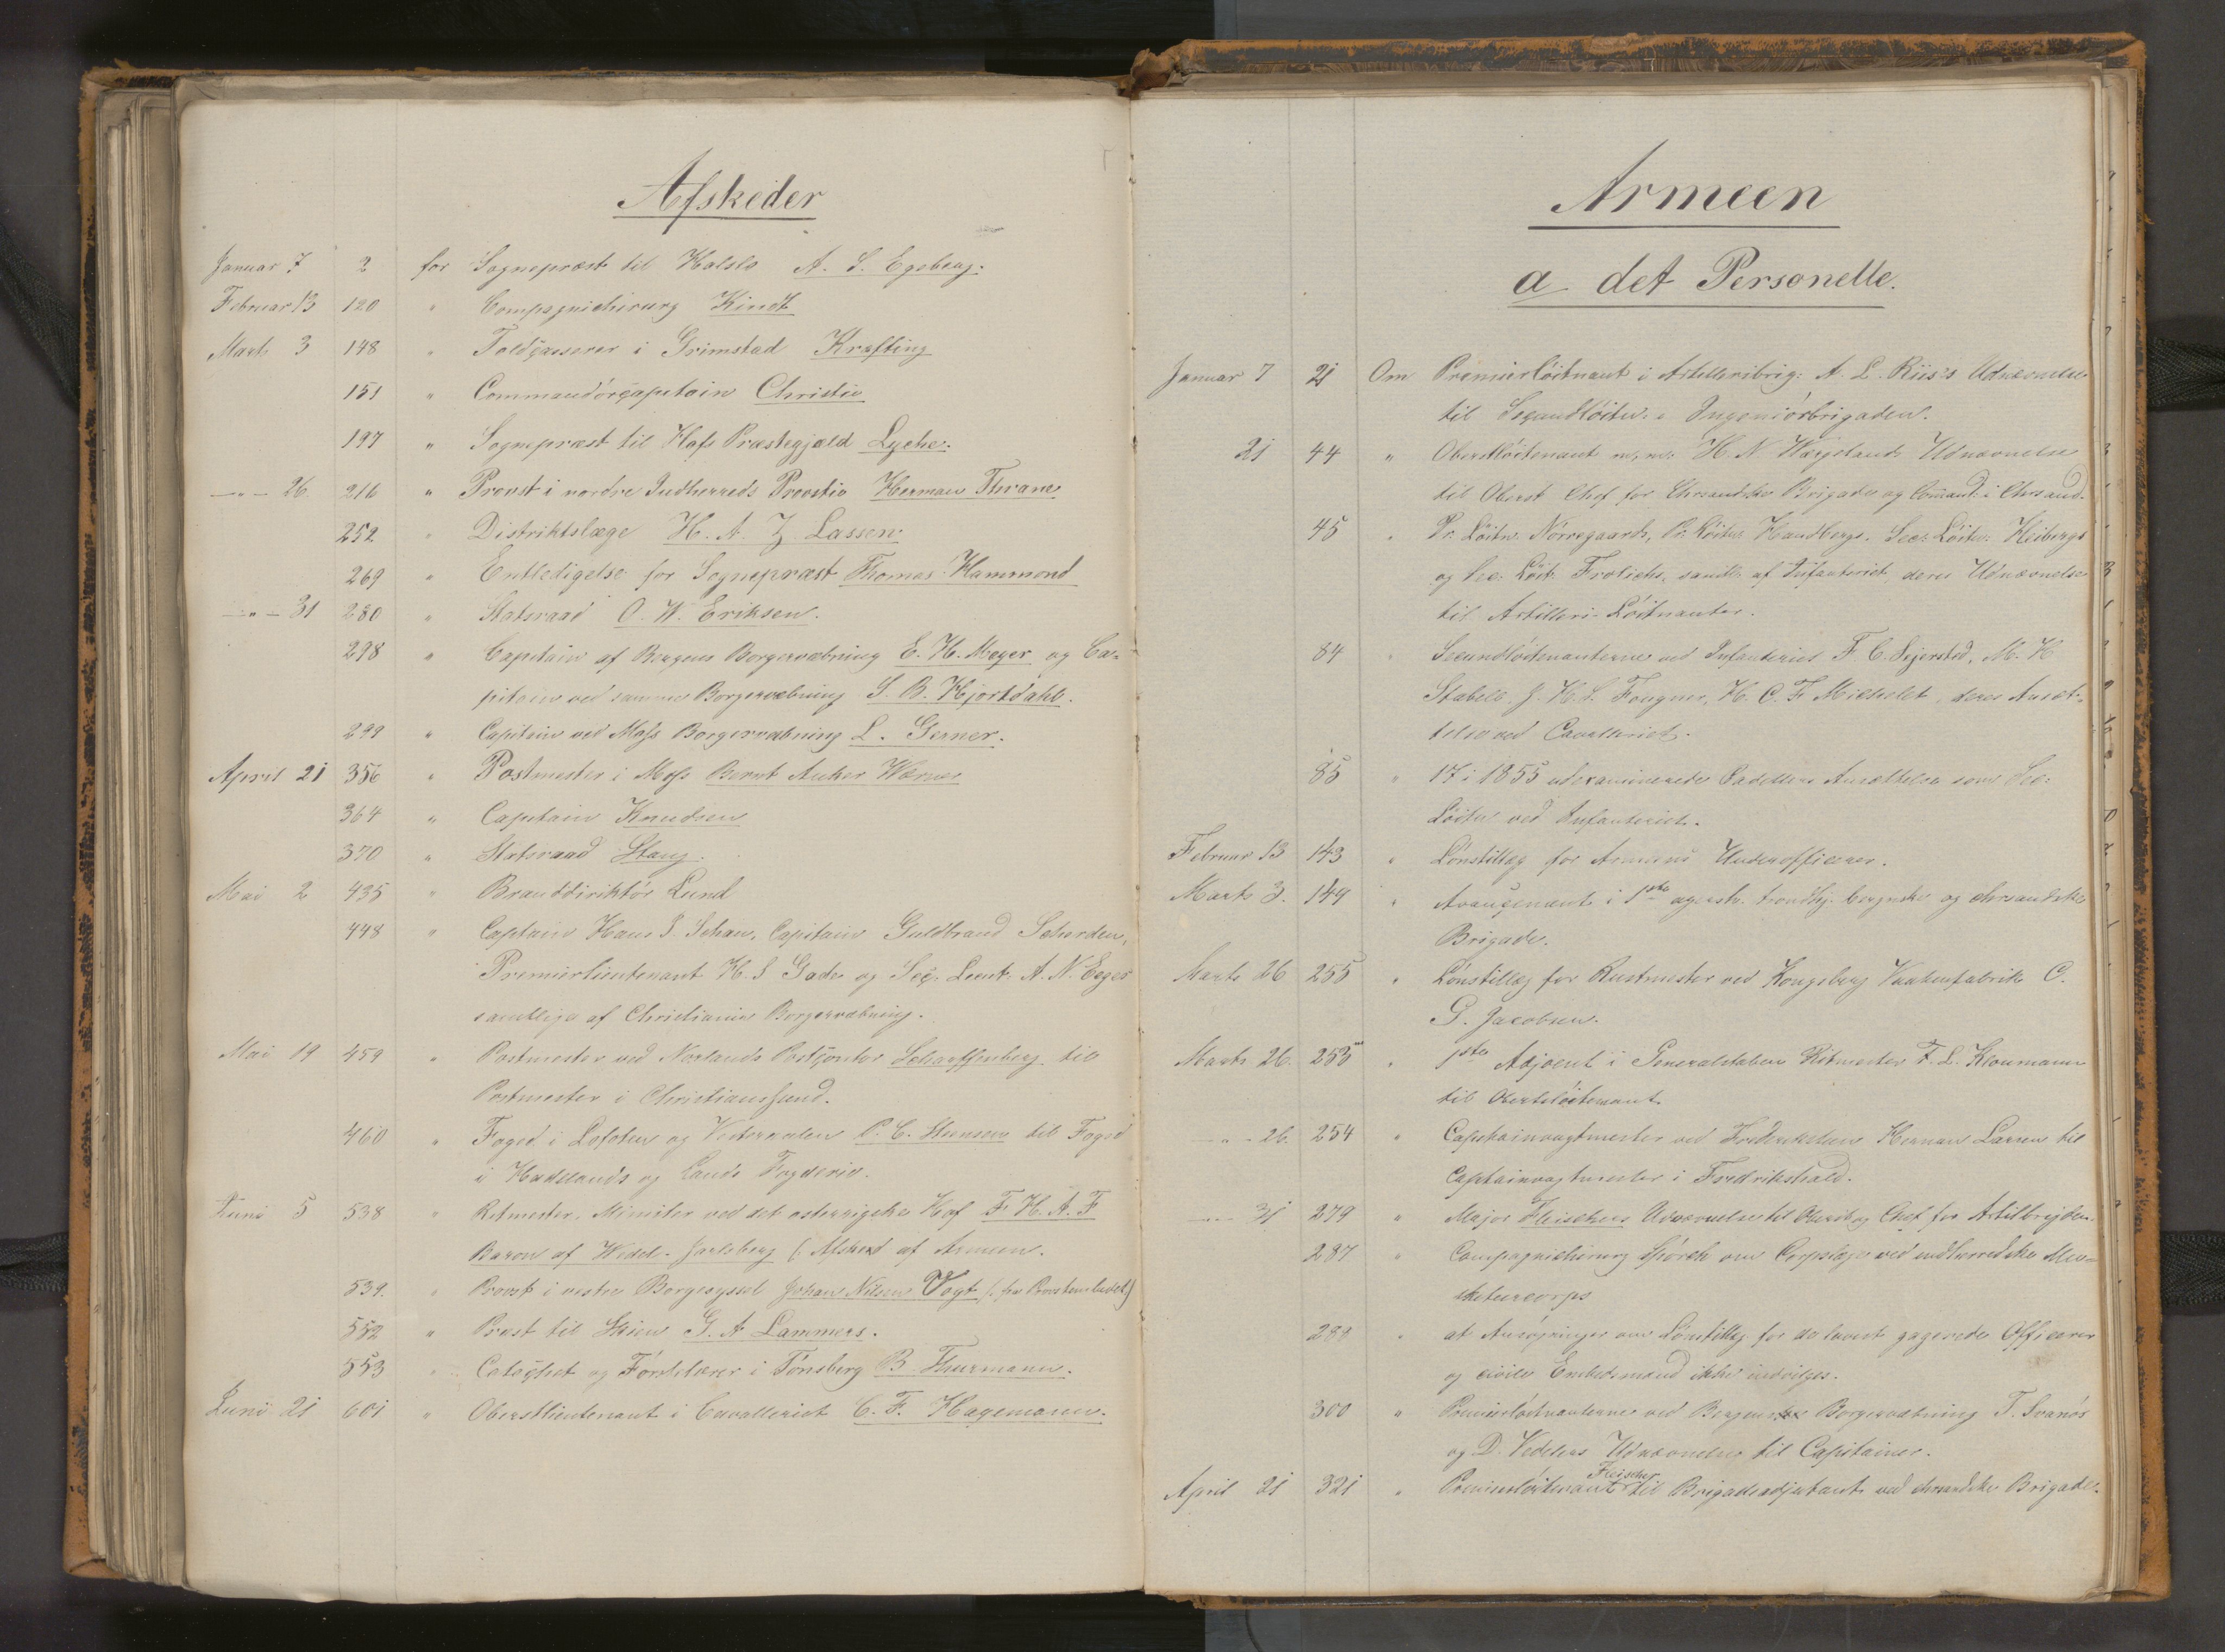 Afskeder
Januar 7 2 for Sognepræst til Halslo A. S. Egeberg.
Februar 13 120 " Compagnichirurg Kindt
Marts 3 148 " Toldcasserer i Grimstad Kræfting
151 " Commandörcapitain Christie
197 " Sognepræst til Hofs Præstegjæld Lyche.
—"— 26. 216 " Provst i nordre Indherreds Provsti Herman Thrane
252 " Distriktslæge H. A. Z. Lassen
269 " Entledigelse for Sognepræst Thomas Hammond
—"— 31 280 " Statsraad O. W. Eriksen.
298 " Capitain af Bergens Borgervæbning E. H. Meyer og Ca-
pitain ved samme Borgervæbning S. B. Hjortdahl.
299 " Capitain ved Moss Borgervæbning L. Gerner.
April 21 356 " Postmester i Moss Bernt Anker Wærner
364 " Capitain Knudsen
370 " Statsraad Stang.
Mai 2 435 " Branddirektör Lund
448 " Captain Hans S. Schau, Capitain Guldbrand
Premierlieutenant H. S Gade og Sec. Lieut. A. N. Eeger
samtlige af Christiania Borgervæbning.
Mai 19 459 " Postmester ved Norlands Postcontor Scharffenberg til
Postmester i Christianssund.
460 " Foged i Lofoten og Vesteraalen P. C. Steensen til Foged
i Hadelands og Lands Fogderie.
Juni 5 538 " Ritmester, Minister ved det østerrigske Hof F. H. A. F
Baron af Wedel-Jarlsberg (Afsked af Armeen.
539. " Provst i vestre Borgesyssel Johan Nilsen Vogt (fra Provstembedet)
552 " Præst til Skien G. A Lammers.
553 " Catechet og Förstelærer i Tönsberg B. Thurmann.
Juni 21 601 " Oberstlieutenant i Cavalleriet C. F. Hagemann.
Armeen
a det Personelle.
Januar 7 21 Om Premierlöitnant i Artelleribrig: A. L. Riis's Udnævnelse
til Secundlöitn. i Ingeniörbrigaden.
21 44 " Oberstlöitenant m, m: H. N Wergelands Udnævnelse
til Oberst Chef for Chrsandske Brigade og Comand: i Chrsand.
45 " Pr. Löitn. Nörregaards, Pr. Löitn. Handbergs, Sec: Löitn: Heibergs
og Sec: Löit: Frølichs, samtl. af Infanteriet, deres Udnævnelse
til Artilleri-Löitnanter.
84 " Secundlöitenanterne ved Infanteriet F. C. Sejersted, M. H
Stabell J. H. L. Fougner, H. C. F. Michelet, deres Ansæt-
telse ved Cavalleriet.
85 " 17 i 1855 udexaminerede Cadetters Ansættelse som Sec:
Löitn ved Infanteriet.
Februar 13 143 " Lönstillæg for Armeens Underofficerer.
Marts 3. 149 " Avancement i 1ste agersh. trondhj. bergenske og chrsandske
Brigade.
Marts 26 255 " Lönstillæg for Rustmester ved Kongsberg Vaabenfabrik C.
G. Jacobsen.
Marts 26. 253 " 1ste Adjoent i Generalstaben Ritmester F. L. Kloumann
til Oberstlöitenant
—"— 26. 254 " Capitainvagtmester ved Frederiksteen Herman Larsen til
Capitainvagtmester i Fredrikshald.
—"— 31 279 " Major Fleischers Udnævnelse til Oberst og Chef for Artilbrigden.
287 " Compagnichirurg Spörck om Corpslæge ved indherredske Mus-
keteercorps
289 " at Ansögninger om Lönstillæg for de lavest gagerede Officerer
og civile Embedsmænd ikke indvilges.
300 " Premierlöitnanterne ved Bergenske Borgervæbning T. Svanös
og D. Vedelers Udnævnelse til Capitainer.
April 21 321 " Premierlöitenant Fleischer til Brigadeadjutant ved chrsandske Brigade.